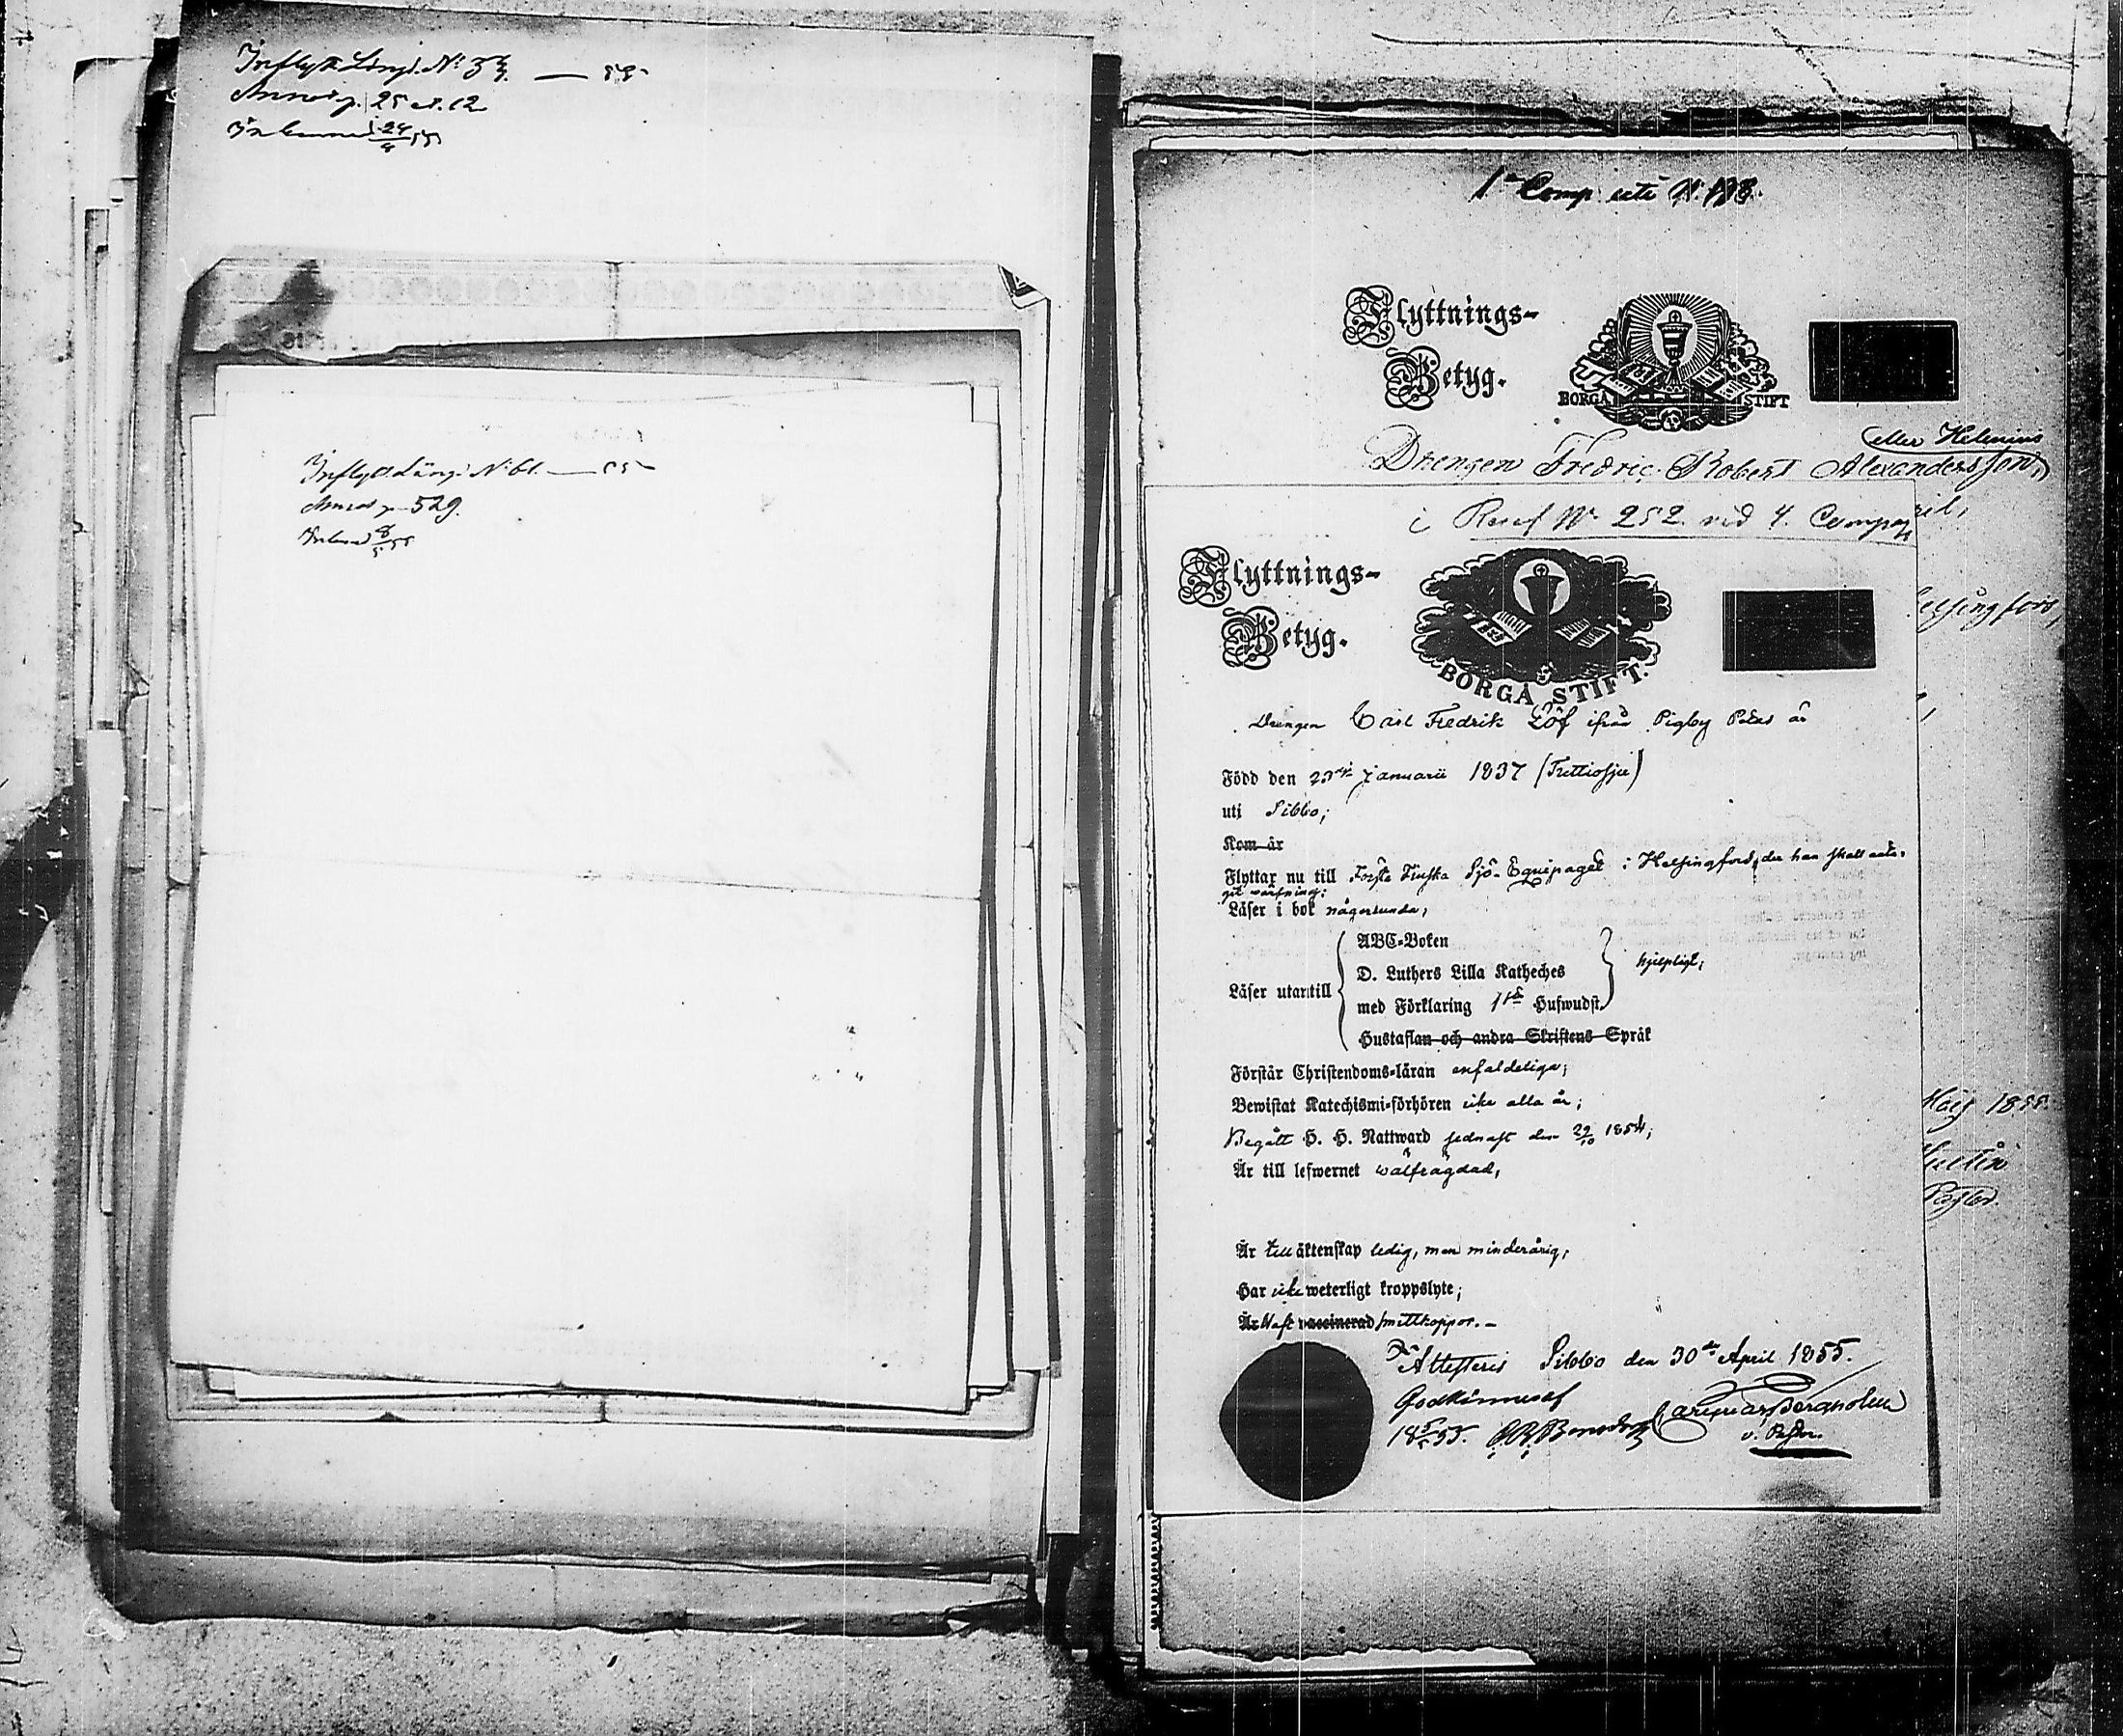 Inflytt. Längd. N:o
Annot. p. 25 et. 12
Inlemnad 24/4 55
Inflytt. Längd N:o 61. — 55
Annot p. 529.
Inlemnad 8/5 55
1:a Comp N:
Flyttnings-
Betyg.
BORGÅ STIFT
eller Helenius
Drengen Fredric Robert Alexandersson,
i Reserf N:o 252 vid 4. Compag
Flyttnings-
Betyg.
BORGÅ STIFT.
Drengen Carl Fredrik Löf ifrån Pigby är
Född den 23:dje Januarii 1837 (Trettiosju)
uti Sibbo;
Kom år
Flyttar nu till Första Finska Sjö-Equipaget i Helsingfors, der han skall
Läser i bok någorlunda;
Läser utantill
ABC-Boken
D. Luthers Lilla Katheches
med Förklaring Hufwudst.
hjelpligt;
Hustaflan och andra Skriftens Språk
Förstår Christendoms-läran enfaldeliga;
Bewistat Katechismi-förhören icke alla år;
Begått H. H. Nattward sednast den 29/10 1854;
Är till lefwernet wälfrägdad,
Är till äktenskap ledig, men minderårig;
Har icke weterligt kroppslyte;
Är Haft vaccinerad smittkoppor. –
Attesteris Sibbo den 30:de April 1855.
Godkännes af
v. Pastor.
elsingfors,
Maij 1855.
Pastor.